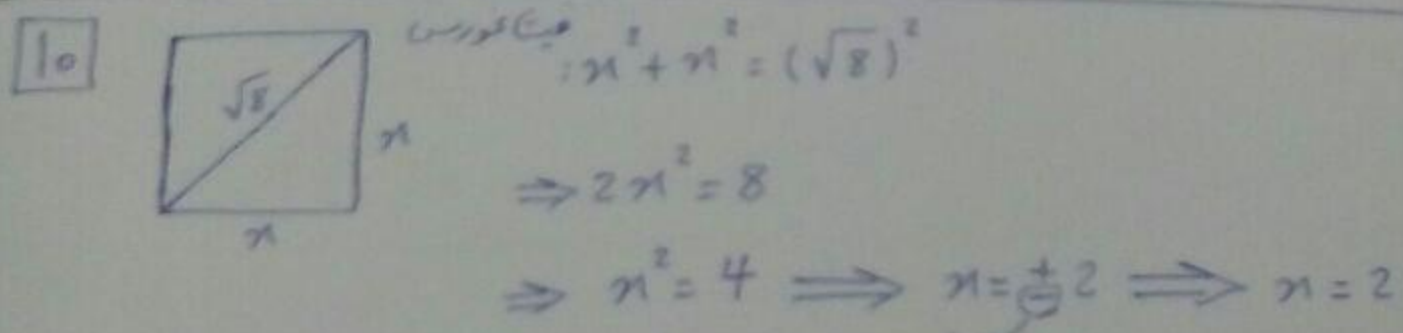 10
فیثاغورس: x² + x² = (√8)²
√8
x
⇒ 2x² = 8
x
⇒ x² = 4 ⟹ x = ±2 ⟹ x = 2